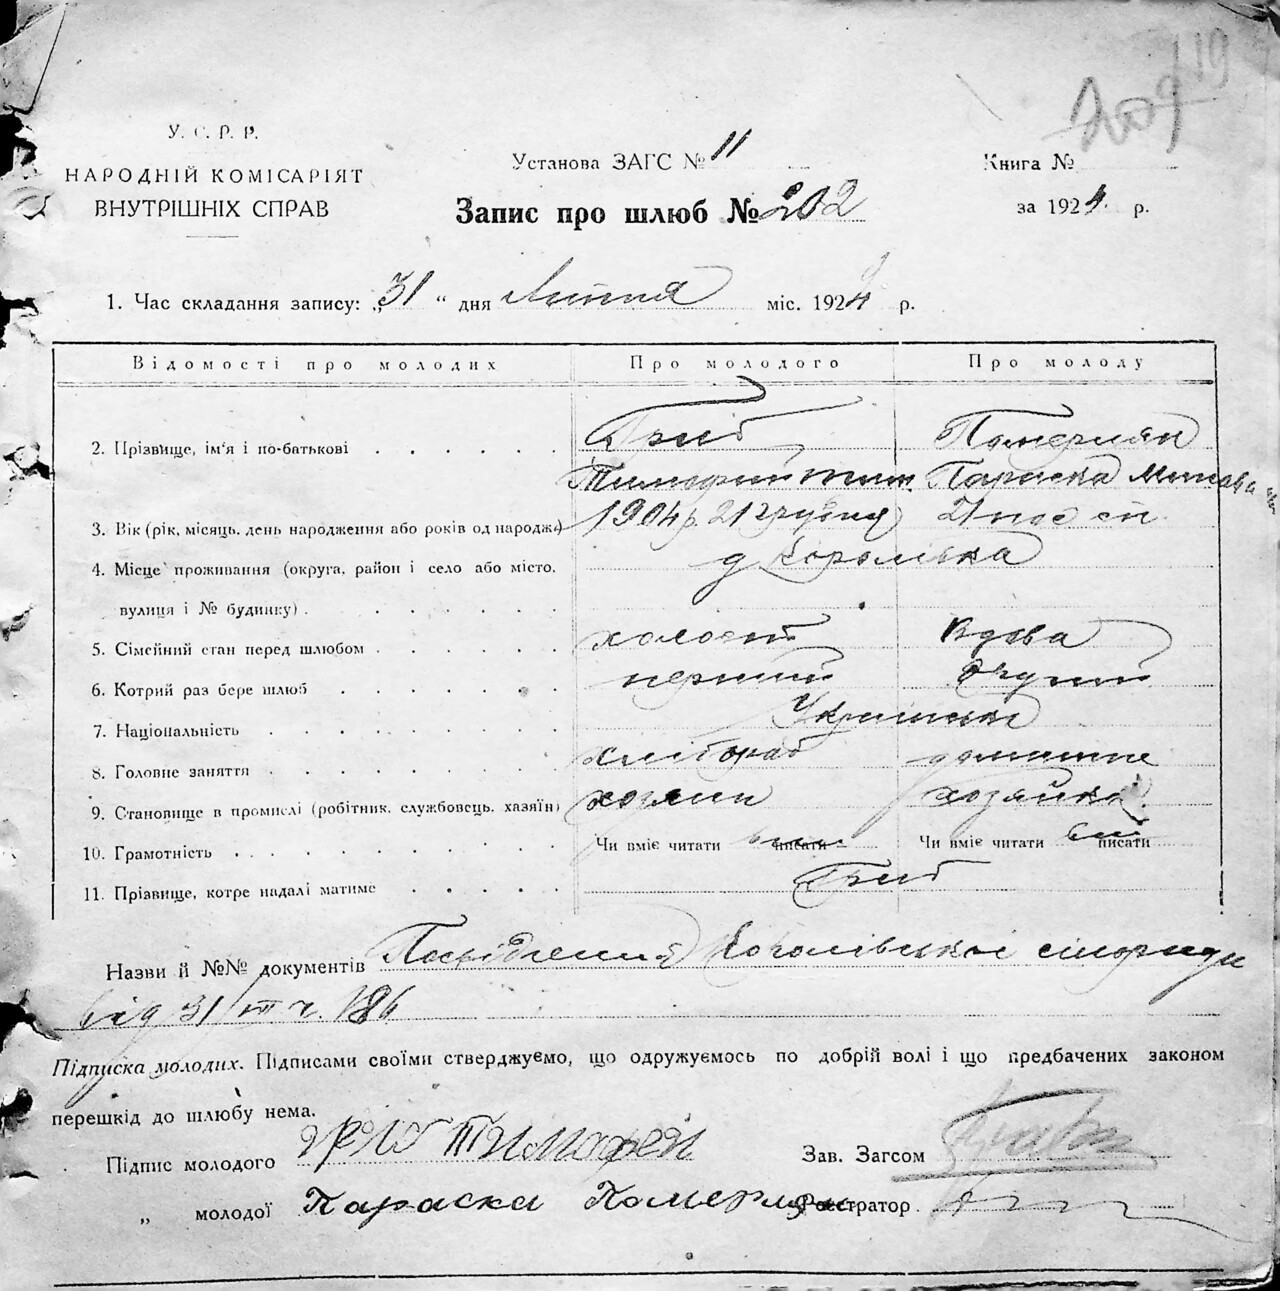 209 19
У. С. Р. Р.
НАРОДНІЙ КОМІСАРІЯТ
ВНУТРІШНІХ СПРАВ
Установа ЗАГС № 11
Запис про шлюб № 202
Книга №
за 1924 р.
1. Час складання запису: „31“ дня липня міс. 1924 р.
Відомості про молодих Про молодого Про молоду
2. Прізвище, ім'я і по-батькові Гриб Померлян
Тимофій Тим. Параска
3. Вік (рік, місяць, день народження або років од народж.) 1904 р 21 грудня 21
4. Місце проживання (округа, район і село або місто, д Королівка
вулиця і № будинку)
5. Сімейний стан перед шлюбом холост вдова
6. Котрий раз бере шлюб перший другий
7. Національність Українські
8. Головне заняття хлібороб домашнє
9. Становище в промислі (робітник, службовець, хазяїн) хозяин хозяйка
10. Грамотність Чи вміє читати писати Чи вміє читати писати
11. Прізвище, котре надалі матиме Гриб
Назви й №№ документів Посвідчення Королівської сільради
від 31/VII ч. 186
Підписка молодих. Підписами своїми стверджуємо, що одружуємось по добрій волі і що предбачених законом
перешкід до шлюбу нема.
Підпис молодого гриб Тимофей Зав. Загсом
„ молодої Параска Померлян Реєстратор